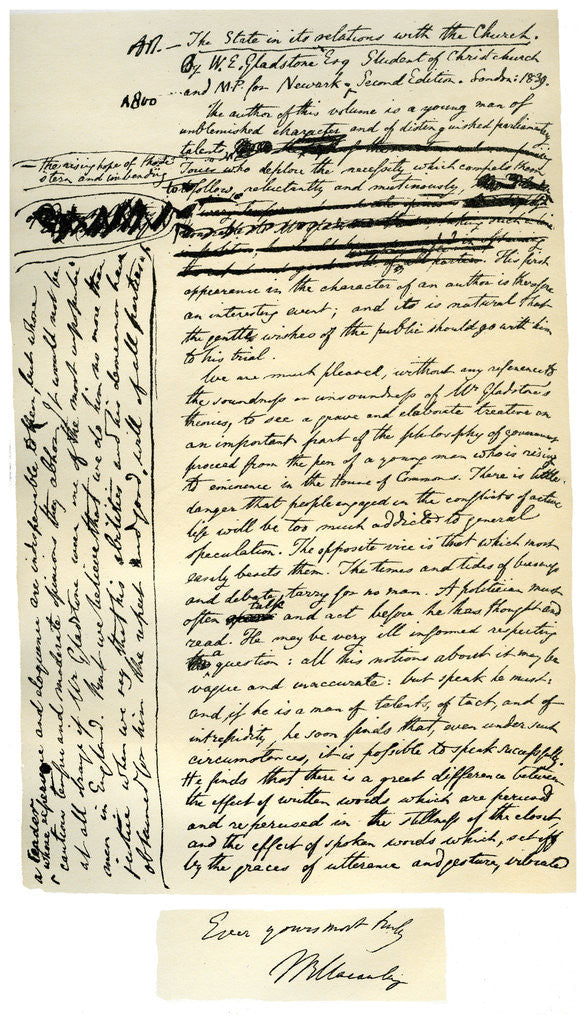 Art. — The State in its relations with the Church.
By W. E. Gladstone Esq Student of Christ church
and M.P. for Newark. Second Edition. London: 1839.
A800
The author of this volume is a young man of
unblemished character and of distinguished parliamentary
talents,
— the rising hope of those
stern and unbending
Tories who deplore the necessity which compels them
to follow, reluctantly and mutinously,
of all parties. His first
appearance in the character of an author is therefore
an interesting event; and it is natural that
the gentle wishes of the public should go with him
to his trial.
We are much pleased, without any reference to
the soundness or unsoundness of Mr Gladstone's
theories, to see a grave and elaborate treatise on
an important part of the philosophy of government
proceed from the pen of a young man who is rising
to eminence in the House of Commons. There is little
danger that people engaged in the conflicts of active
life will be too much addicted to general
speculation. The opposite vice is that which most
easily besets them. The times and tides of business
and debate tarry for no man. A politician must
often talk and act before he has thought and
read. He may be very ill informed respecting
a question: all his notions about it may be
vague and inaccurate: but speak he must:
and if he is a man of talents, of tact, and of
intrepidity, he soon finds that, even under such
circumstances, it is possible to speak successfully.
He finds that there is a great difference between
the effect of written words which are perused
and reperused in the stillness of the closet
and the effect of spoken words which, set off
by the graces of utterance and gesture, vibrate
a leader, whose experience and eloquence are indispensable to them, but whose
cautious temper and moderate opinions they abhor. It would not be
at all strange if Mr Gladstone were one of the most unpopular
men in England. But we believe that we do him no more than
justice when we say that his abilities and his demeanour have
obtained for him the respect and good will of all parties.
Ever yours most truly
TBMacaulay